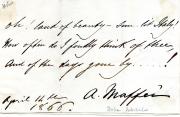 oh! land of beauty - 
How often do I fondly think of thee,
And of the days gone by.....!
A. Maffei
April 14th
1866.